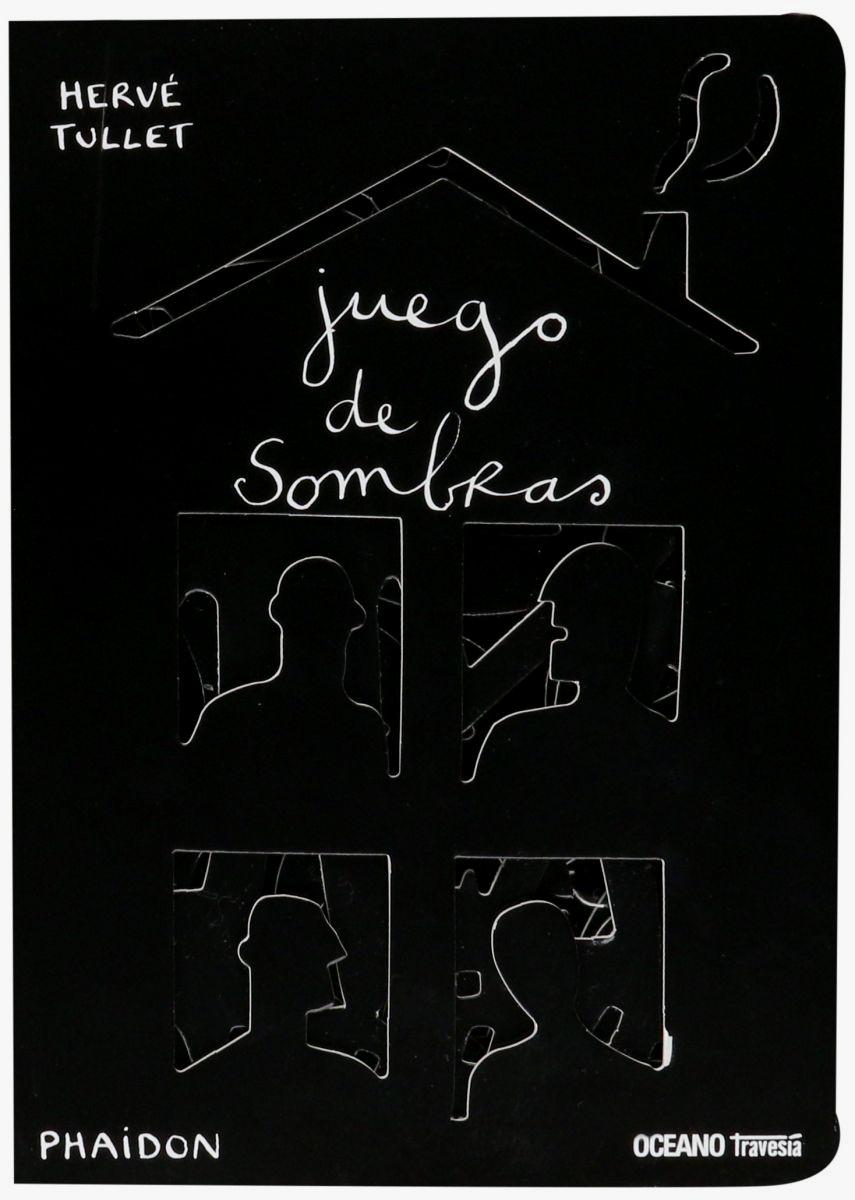 HERVÉ
TULLET
juego
de
Sombras
PHAiDON
OCEANO Travesía